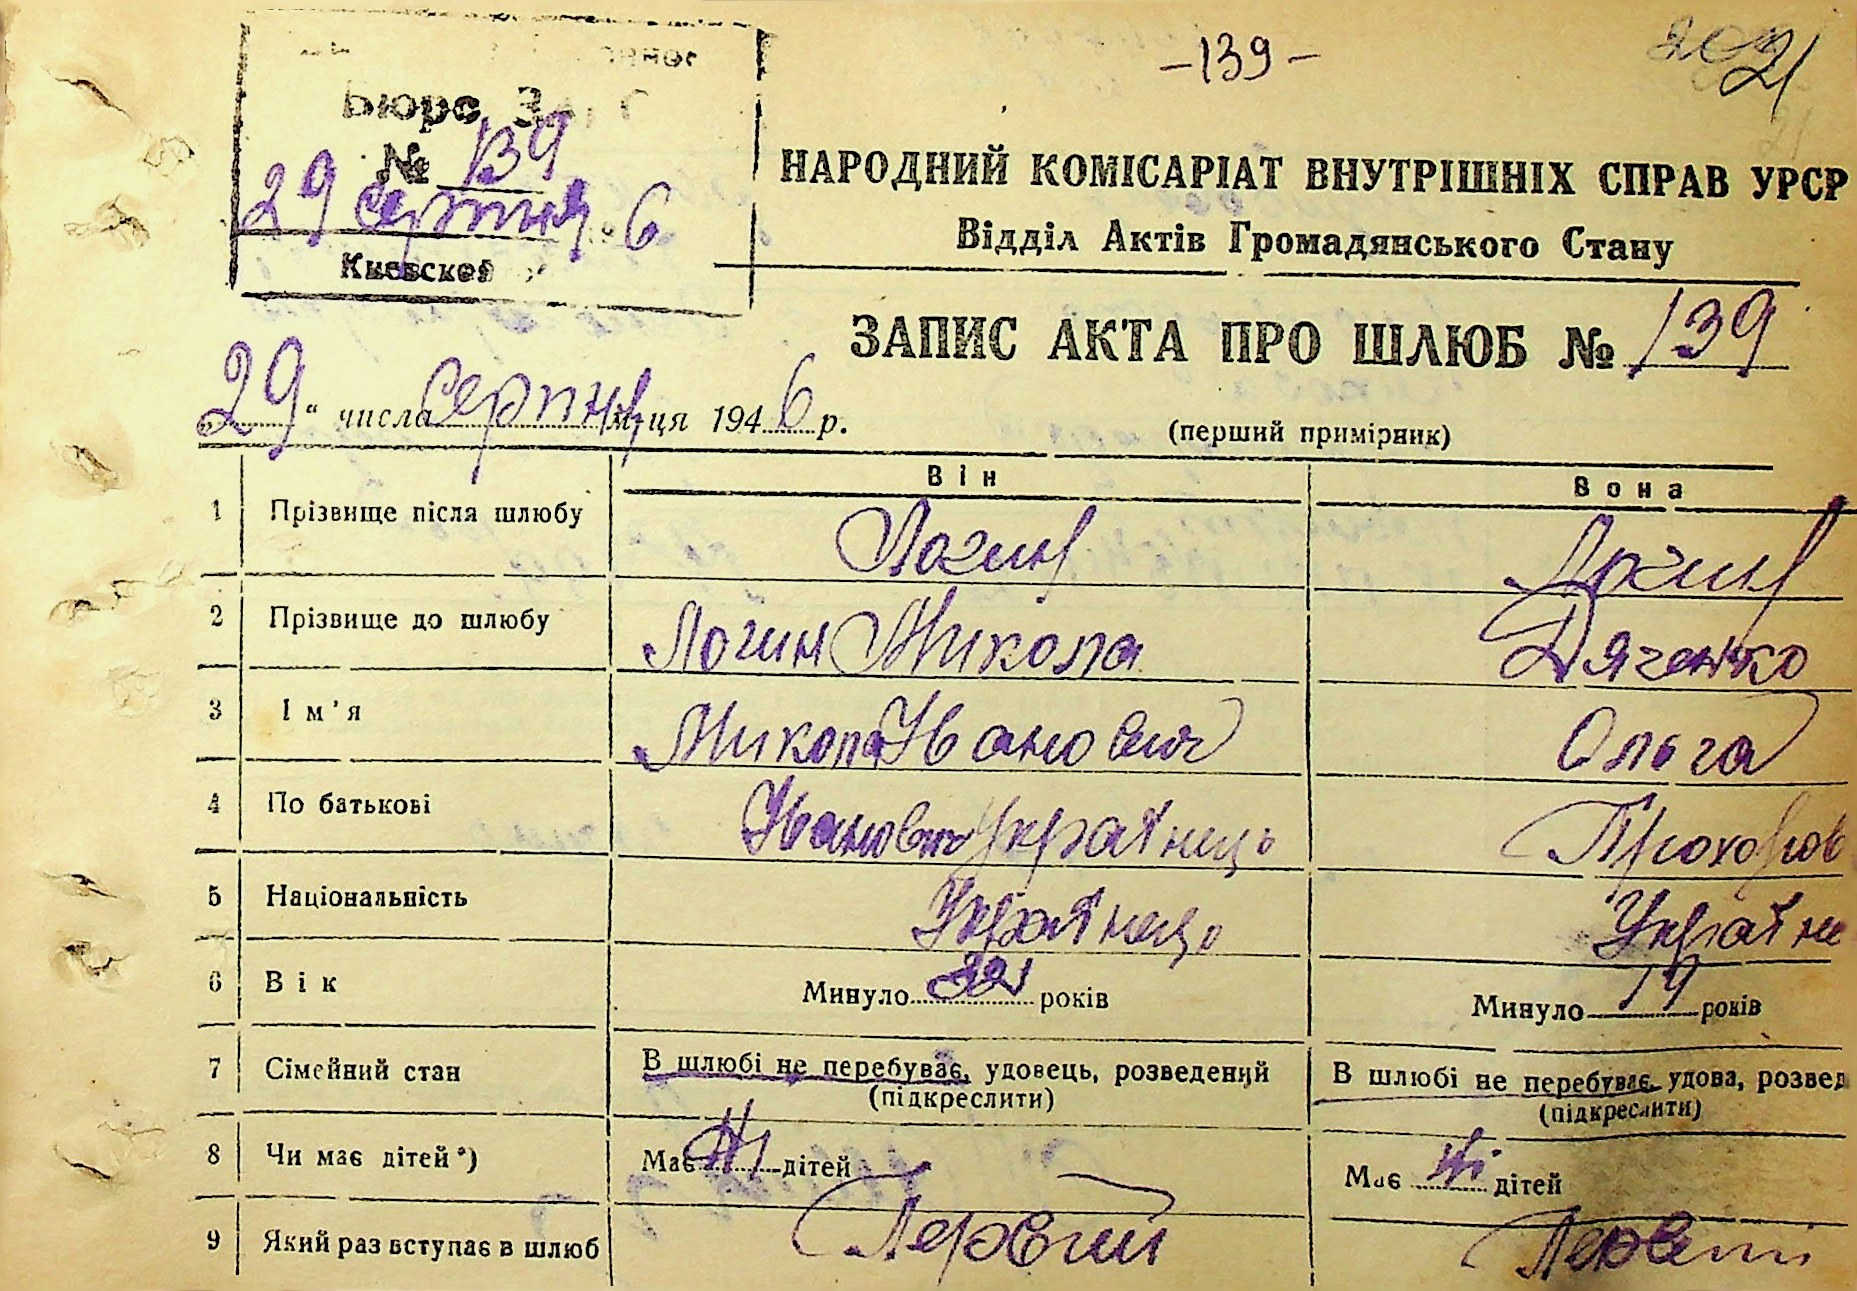 -139-
21
Бюро
№ 139
29 серпня 6
Киевской
НАРОДНИЙ КОМІСАРІАТ ВНУТРІШНІХ СПРАВ УРСР
Відділ Актів Громадянського Стану
ЗАПИС АКТА ПРО ШЛЮБ № 139
„29“ числа серпня м-ця 1946 р.
(перший примірник)
Він Вона
1 Прізвище після шлюбу Логин Логин
2 Прізвище до шлюбу Логин Микола Дяченко
3 Ім'я Микола Иванович Ольга
4 По батькові Иванович Українець Прохоров
5 Національність Українець Українс
6 Вік Минуло років Минуло 19 років
7 Сімейний стан В шлюбі не перебуває, удовець, розведений В шлюбі не перебуває, удова, розвед
(підкреслити) (підкреслити)
8 Чи має дітей*) Має ні дітей Має ні дітей
9 Який раз вступає в шлюб Первий Первий